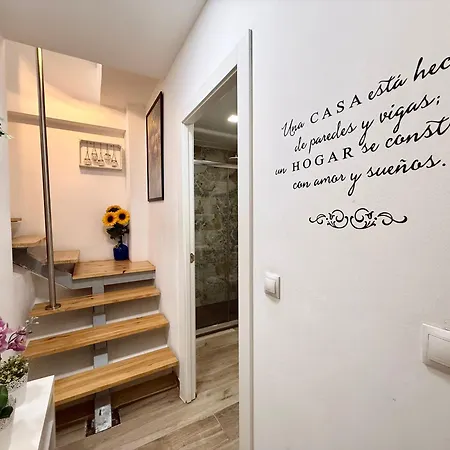 Una CASA está hec
de paredes y vigas;
un HOGAR se const
con amor y sueños.